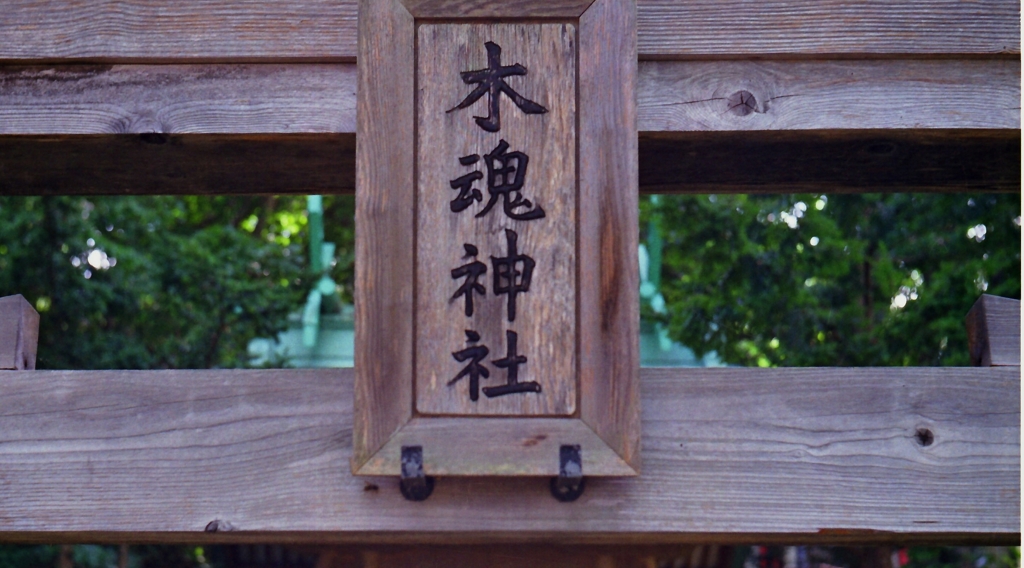 木魂神社